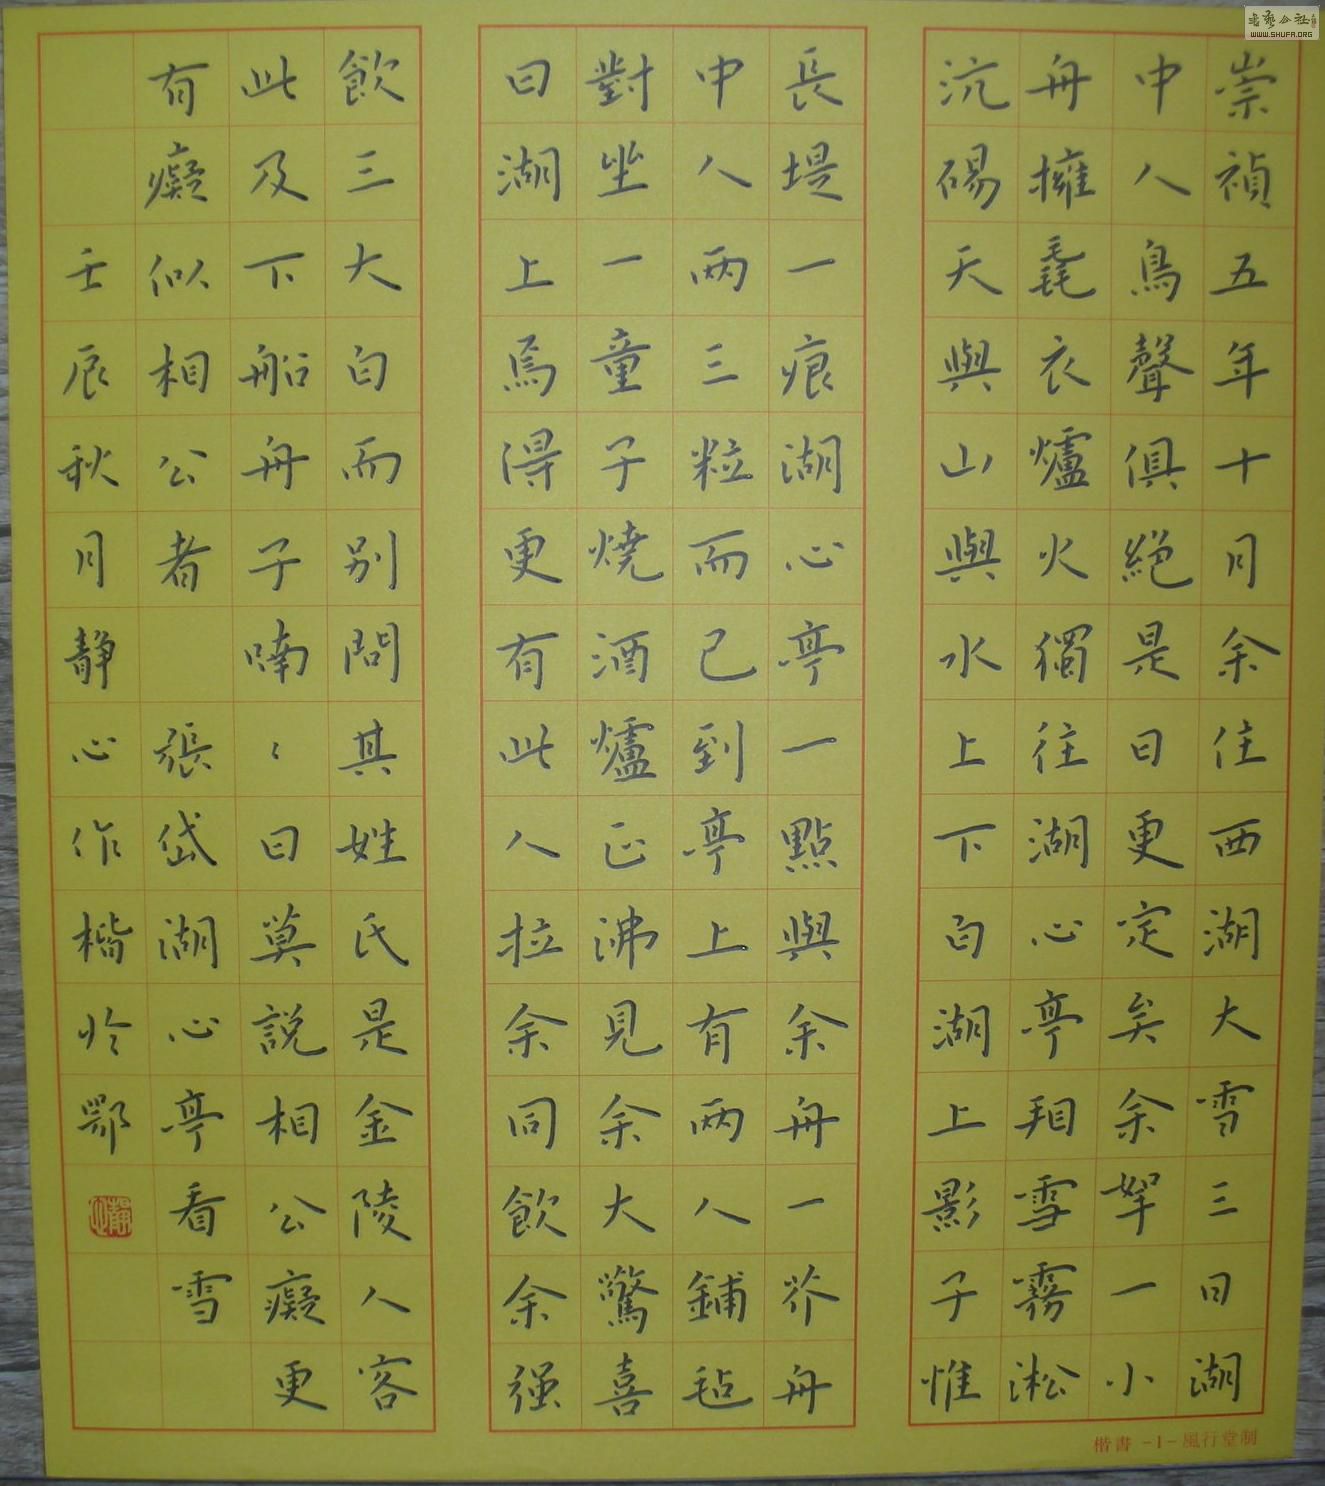 崇禎五年十月余住西湖大雪三日湖
中人鳥聲俱絕是日更定矣余拏一小
舟擁毳衣爐火獨往湖心亭𥄢雪霧淞
沆碭天與山與水上下白湖上影子惟
長堤一痕湖心亭一點與余舟一芥舟
中人兩三粒而已到亭上有兩人鋪毡
對坐一童子燒酒爐正沸見余大驚喜
曰湖上焉得更有此人拉余同飲余强
飲三大白而别問其姓氏是金陵人客
此及下船舟子喃〻曰莫説相公癡更
有癡似相公者 張岱湖心亭看雪
壬辰秋月靜心作楷於鄂
楷書 -1- 風行堂制
WWW.SHUFA.ORG